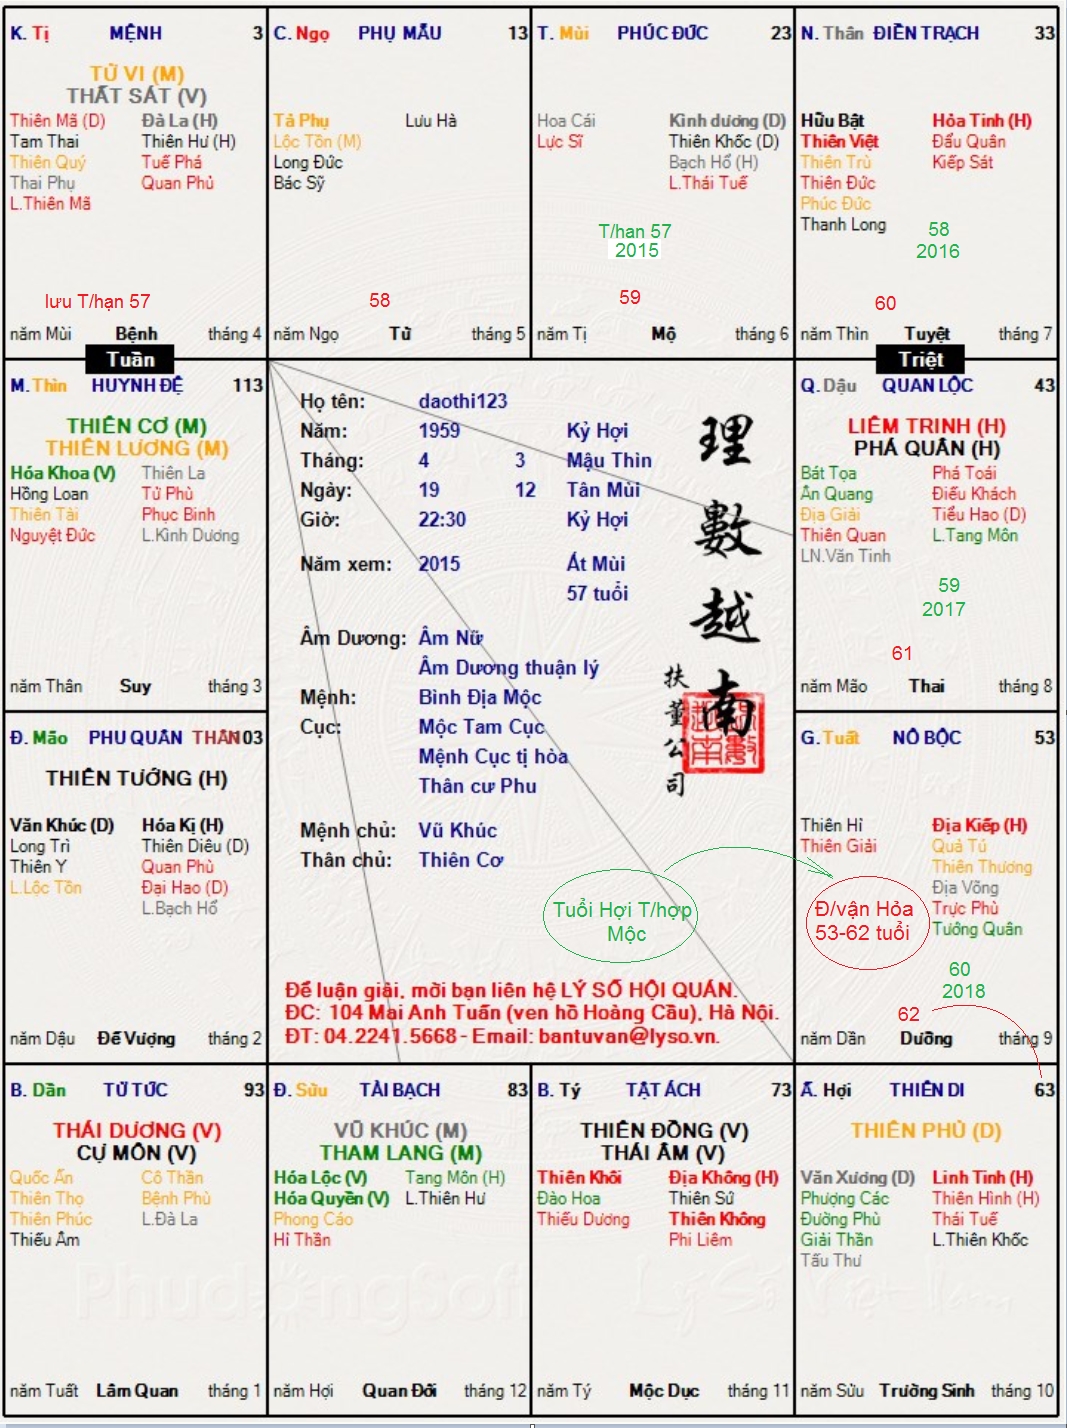 K. Tị MỆNH 3
TỬ VI (M)
THẤT SÁT (V)
Thiên Mã (D) Đà La (H)
Tam Thai Thiên Hư (H)
Thiên Quý Tuế Phá
Thai Phụ Quan Phủ
L.Thiên Mã
lưu T/hạn 57
năm Mùi Bệnh tháng 4
C. Ngọ PHỤ MẪU 13
Tả Phụ Lưu Hà
Lộc Tồn (M)
Long Đức
Bác Sỹ
58
năm Ngọ Tử tháng 5
T. Mùi PHÚC ĐỨC 23
Hoa Cái Kình dương (D)
Lực Sĩ Thiên Khốc (D)
Bạch Hổ (H)
L.Thái Tuế
T/han 57
2015
59
năm Tị Mộ tháng 6
N. Thân ĐIỀN TRẠCH 33
Hữu Bật Hỏa Tinh (H)
Thiên Việt Đẩu Quân
Thiên Trù Kiếp Sát
Thiên Đức
Phúc Đức
Thanh Long
58
2016
60
năm Thìn Tuyệt tháng 7
Tuần
Triệt
M. Thìn HUYNH ĐỆ 113
THIÊN CƠ (M)
THIÊN LƯƠNG (M)
Hóa Khoa (V) Thiên La
Hồng Loan Tử Phù
Thiên Tài Phục Binh
Nguyệt Đức L.Kình Dương
năm Thân Suy tháng 3
Họ tên: daothi123
Năm: 1959 Kỷ Hợi
Tháng: 4 3 Mậu Thìn
Ngày: 19 12 Tân Mùi
Giờ: 22:30 Kỷ Hợi
Năm xem: 2015 Ất Mùi
57 tuổi
Âm Dương: Âm Nữ
Âm Dương thuận lý
Mệnh: Bình Địa Mộc
Cục: Mộc Tam Cục
Mệnh Cục tị hòa
Thân cư Phu
Mệnh chủ: Vũ Khúc
Thân chủ: Thiên Cơ
理數越南
扶董公司
Tuổi Hợi T/hợp
Mộc
Để luận giải, mời bạn liên hệ LÝ SỐ HỘI QUÁN.
ĐC: 104 Mai Anh Tuấn (ven hồ Hoàng Cầu), Hà Nội.
ĐT: 04.2241.5668 - Email: bantuvan@lyso.vn.
Q. Dậu QUAN LỘC 43
LIÊM TRINH (H)
PHÁ QUÂN (H)
Bát Tọa Phá Toái
Ân Quang Điếu Khách
Địa Giải Tiểu Hao (D)
Thiên Quan L.Tang Môn
LN.Văn Tinh
59
2017
61
năm Mão Thai tháng 8
Đ. Mão PHU QUÂN THÂN 03
THIÊN TƯỚNG (H)
Văn Khúc (D) Hóa Kị (H)
Long Trì Thiên Diêu (D)
Thiên Y Quan Phù
L.Lộc Tồn Đại Hao (D)
L.Bạch Hổ
năm Dậu Đế Vượng tháng 2
G. Tuất NÔ BỘC 53
Thiên Hỉ Địa Kiếp (H)
Thiên Giải Quả Tú
Thiên Thương
Địa Võng
Trực Phù
Tướng Quân
Đ/vận Hỏa
53-62 tuổi
60
2018
62
năm Dần Dưỡng tháng 9
B. Dần TỬ TỨC 93
THÁI DƯƠNG (V)
CỰ MÔN (V)
Quốc Ấn Cô Thần
Thiên Thọ Bệnh Phù
Thiên Phúc L.Đà La
Thiếu Âm
năm Tuất Lâm Quan tháng 1
Đ. Sửu TÀI BẠCH 83
VŨ KHÚC (M)
THAM LANG (M)
Hóa Lộc (V) Tang Môn (H)
Hóa Quyền (V) L.Thiên Hư
Phong Cáo
Hỉ Thần
năm Hợi Quan Đới tháng 12
B. Tý TẬT ÁCH 73
THIÊN ĐỒNG (V)
THÁI ÂM (V)
Thiên Khôi Địa Không (H)
Đào Hoa Thiên Sứ
Thiếu Dương Thiên Không
Phi Liêm
năm Tý Mộc Dục tháng 11
Ấ. Hợi THIÊN DI 63
THIÊN PHỦ (D)
Văn Xương (D) Linh Tinh (H)
Phượng Các Thiên Hình (H)
Đường Phù Thái Tuế
Giải Thần L.Thiên Khốc
Tấu Thư
năm Sửu Trường Sinh tháng 10
PhudongSoft
Lý Số Việt Nam